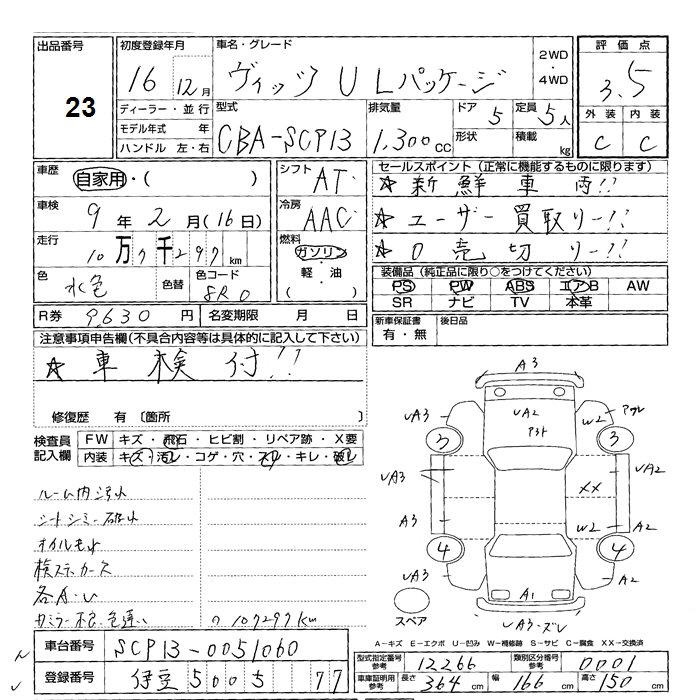 出品番号
23
初度登録年月
16 12月
車名・グレード
ヴィッツ U Lパッケージ
2WD
・
4WD
評価点
3.5
外装 内装
C C
ディーラー・並行
モデル年式 年
ハンドル 左・右
型式
CBA-SCP13
排気量
1,300cc
ドア
5
形状
定員
5人
積載
kg
車歴
自家用・( )
車検
9年2月(16日)
走行
10万7千297km
色
水色
色替
色コード
8R0
シフト
AT
冷房
AAC
燃料
ガソリン
・
軽・油
( )
セールスポイント(正常に機能するものに限ります)
☆新鮮車両!!
☆ユーザー買取りー!!
☆0売切リー!!
装備品(純正品に限り○をつけてください)
PS PW ABS エアB AW
SR ナビ TV 本革
R券 9,630円
名変期限 月 日
新車保証書
有・無
後日品
注意事項申告欄(不具合内容等は具体的に記入して下さい)
☆車検付!!
修復歴 有〔箇所 〕
検査員
記入欄
FW キズ・飛石・ヒビ割・リペア跡・X要
内装 キズ・汚レ・コゲ・穴・スレ・キレ・破レ
ルーム内汚れ
シートシミー破れ
オイルもれ
検ステッカース
各A・U
カミラー不良、色違い
107297km
A3
UA3
UA2
P3ト
W2
3
3
UA3
UA2
XX
A3
W2
A2
4
4
UA3
A2
A1
UA3-ズレ
スペア
A-キズ E-エクボ U-凹み W-補修跡 S-サビ C-腐食 XX-交換済
車台番号 SCP13-0051060
登録番号 伊豆 500 さ 77
型式指定番号
参考
12266
類別区分番号
参考
0001
車庫証明用
参考
長さ 364cm
幅 166cm
高さ 150cm